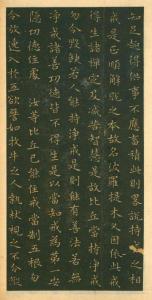 知足趣得供事不應畜積此則畧說持戒之相
戒是正順解脫之本故名波羅提木叉因依此戒
得生諸禪定及滅苦智慧是故比丘當持淨戒
勿令毀缺若人能持淨戒是則能有善法若無
淨戒諸善功德皆不得生是以當知戒為第一安
隱功德住處 汝等比丘已能住戒當制五根勿
令放逸入於五欲譬如牧牛之人執杖視之不令縱